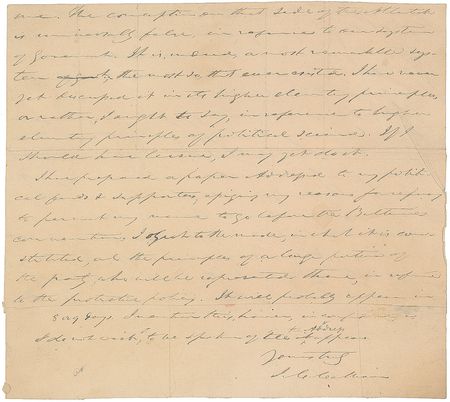 me. The conception on that side of the Atlantick
is universally false, in reference to our system
of Goverment. It is, indeed, a most remarkable sys-
tem the most so, that ever existed. I have never
yet discussed it in its higher elementary principles,
or rather, I ought to say, in reference to higher
elementary principles of political science. If I
should have leisure, I may yet do it.
I have prepared a paper addressed to my politi-
cal friends & supporters, assigning my reasons for refusing
to permit my name to go before the Baltimore
convention. I object to the mode, in which it is con-
stituted, and the principles of a large portion of
the party, who will be represented there, in reference
to the protective policy. It will probably appear in
days. In the mean time, however,
I do not wish it to be spoken of till it appears
Yours truly
J. C. Calhoun